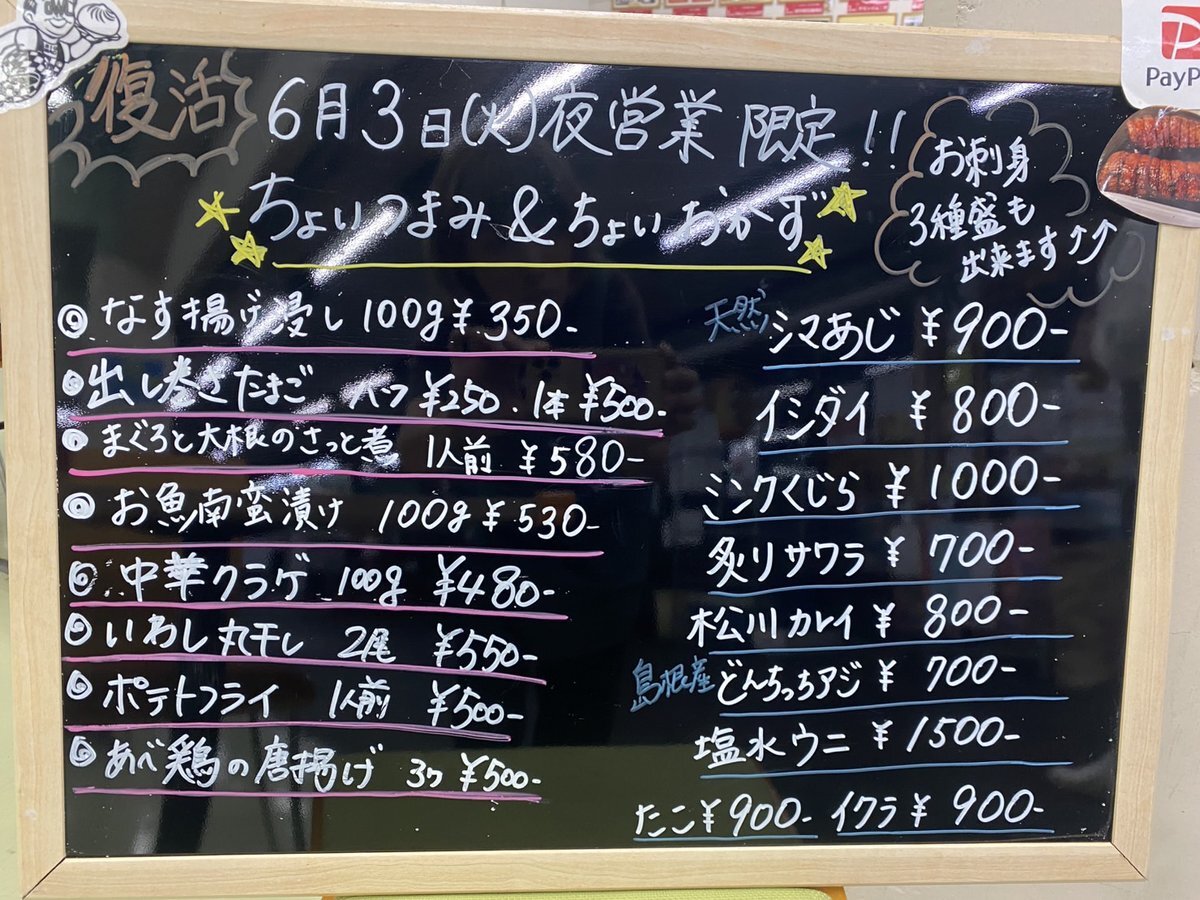 復活
6月3日(火)夜営業 限定!!
ちょいつまみ&ちょいおかず
お刺身
3種盛も
出来ます↑↑
なす揚げ浸し 100g ¥350-
出し巻きたまご ハーフ ¥250. 1本 ¥500-
まぐろと大根のさっと煮 1人前 ¥580-
お魚南蛮漬け 100g ¥530-
中華クラゲ 100g ¥480-
いわし丸干し 2尾 ¥550-
ポテトフライ 1人前 ¥500-
あべ鶏の唐揚げ 3ケ ¥500-
天然 シマあじ ¥900-
イシダイ ¥800-
ミンクくじら ¥1000-
炙りサワラ ¥700-
松川カレイ ¥800-
島根産 どんちっちアジ ¥700-
塩水ウニ ¥1500-
たこ ¥900- イクラ ¥900-